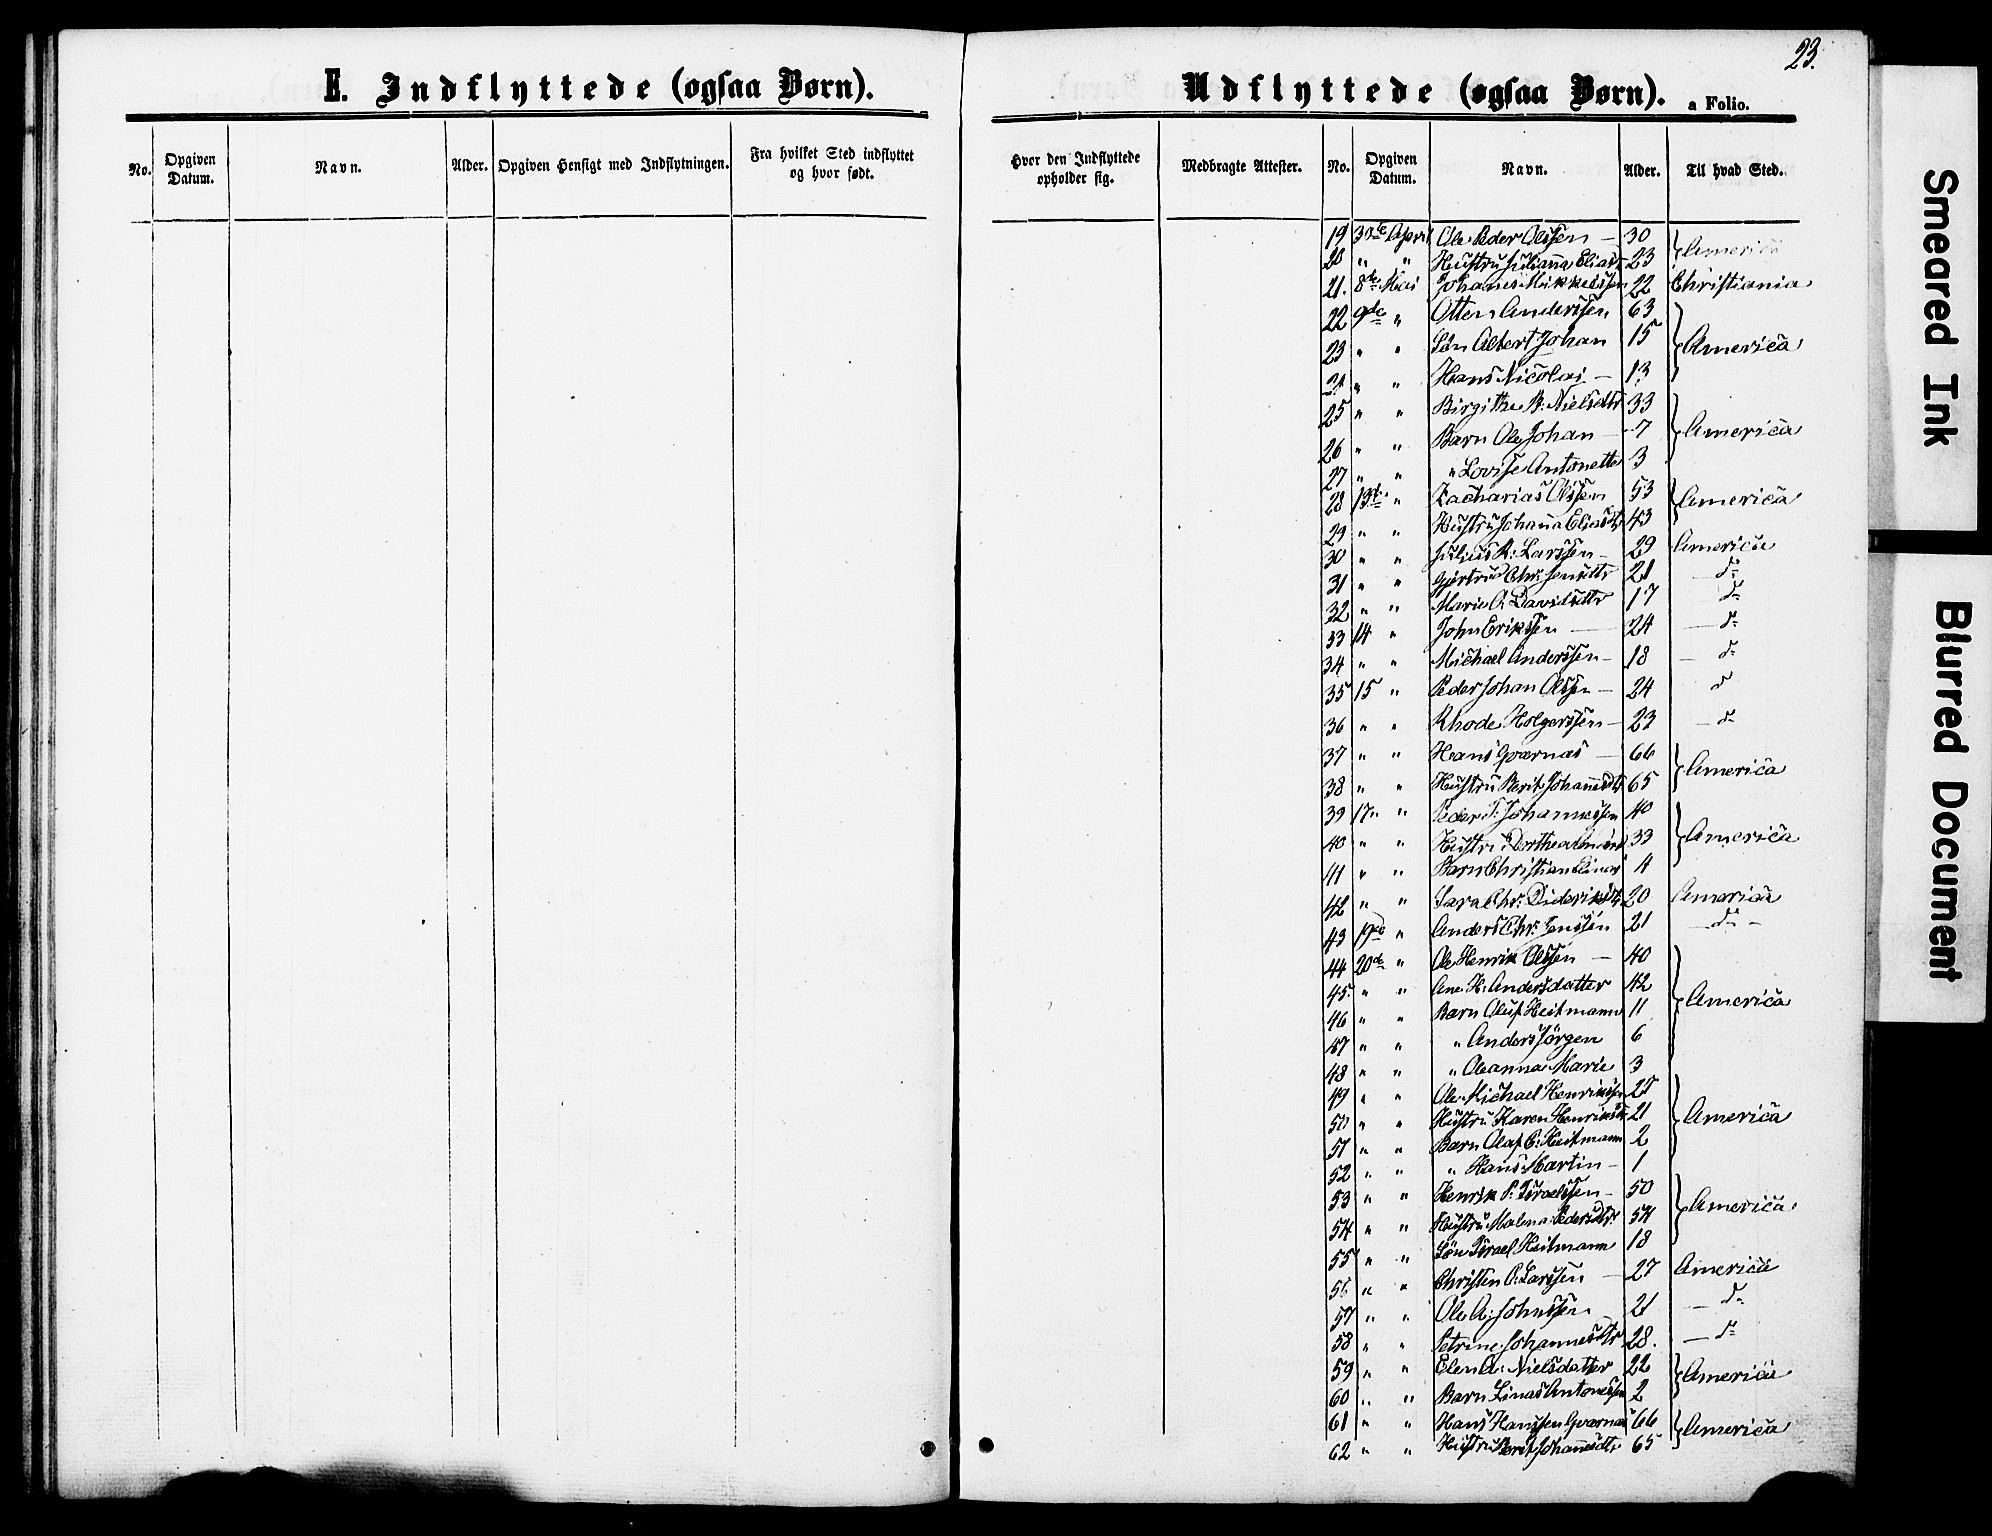 23.
E. Indflyttede (ogsaa Børn).
Udflyttede (ogsaa Børn). a Folio.
No. Opgiven Datum. Navn. Alder. Opgiven Hensigt med Indflytningen. Fra hvilket Sted indflyttet og hvor født.
Hvor den Indflyttede opholder sig. Medbragte Attester. No. Opgiven Datum. Navn. Alder. Til hvad Sted.
19 30te April Ole Peder Olssen — 30 } America
20 " " Hustru Julianna Eliasd. 23
21. 8de Mai Johanes Mikkelssen 22 Christiania
22 9de " Otten Anderssen 63
23 " " Søn Albert Johan 15 } America
24 " " Hans Nicolai — 13
25 " " Birgithe B: Nielsdtr 33
26 " " Barn Ole Johan — 7 } America
27 " " " Lovise Antonette 3
28 13de " Zacharias Olssen 53 } America
29 " " Hustru Johana Eliasdtr 43
30 " " Julius R: Larssen — 29 America
31 " " Gjertrud Chr: Jensdtr 21 — do
32 " " Marie A Davidsdtr 17 do
33 14 " John Erikssen — 24 — do
34 " " Michael Anderssen — 18 — do
35 15 " Peder Johan Olssen — 24 do
36 " " Rhode Holgerssen — 23 — do
37 " " Hans Gvarnæs — 66 } America
38 " " Hustru Berit Johannesdtr 65
39 17 " Peder T: Johannessen 40
40 " " Hustru Dorthea 33 } America
41 " " Barn Christian Einar 4
42 " " Sara Chr: Dideriksdtr 20 America
43 19de " Anders Chr: Jenssen 21 — do —
44 20de " Ole Henrik Olssen — 40
45. " " Ane H: Andersdatter 42 } America
46 " " Barn Oluf Heitmann 11
47 " " " Anders Jørgen 6
48 " " " Oleanna Marie 3
49 " " Ole Michael Henrikssen 25
50 " " Hustru Karen Henriksdtr 21 } America
51 " " Barn Olaf C: Heitmann 2
52 " " " Hans Martin — 1
53 " " Henrik P: Israelssen — 50 } America
54 " " Hustru Malena Pedersdtr: 54
55 " " Søn Israel Heitmann 18
56 " " Christen O: Larssen — 27 America
57 " " Ole A: Johnssen 21 — do
58 " " Petrine Johannesdtr 28. — do
59 " " Elen A: Nielsdatter 22 } America
60 " " Barn Linas Antonessen 2
61 " " Hans Hanssen Gvarnæs 66 } America
62 " " Hustru Berit Johannesdtr 65
Smeared Ink
Blurred Document